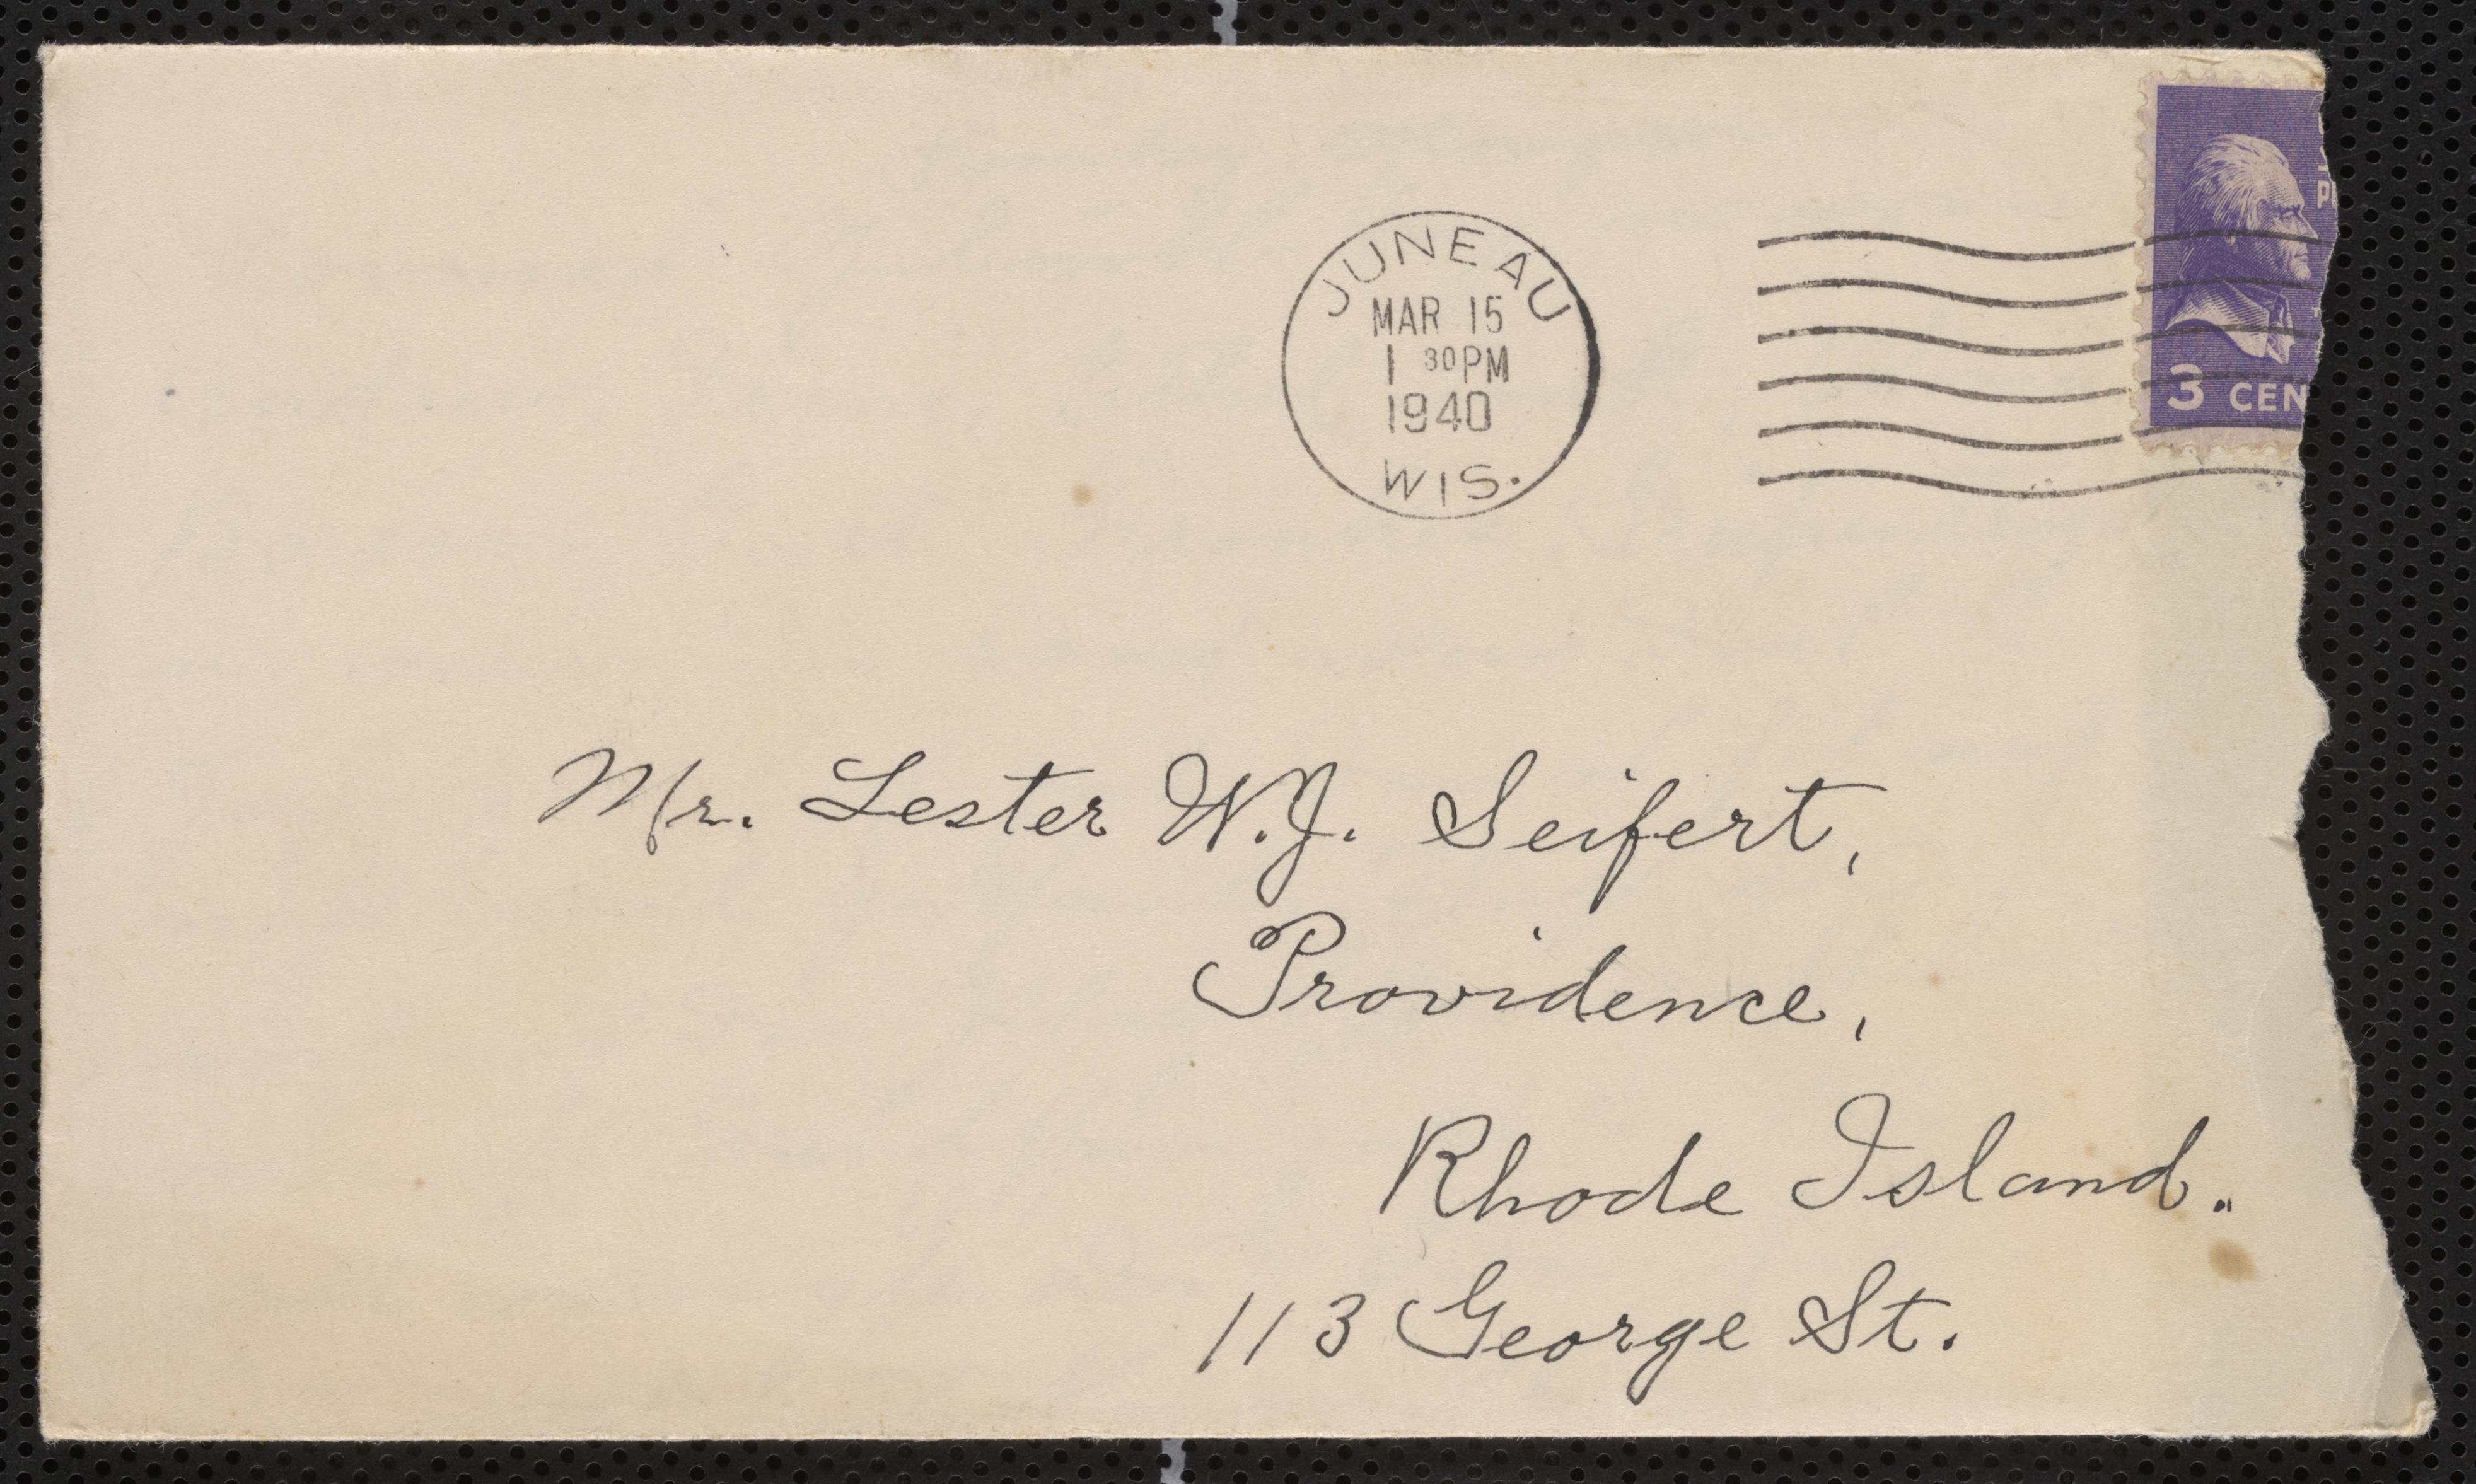 JUNEAU
MAR 15
1 30PM
1940
WIS.
3 CEN
Mr. Lester W.J. Seifert,
Providence,
Rhode Island.
113 George St.